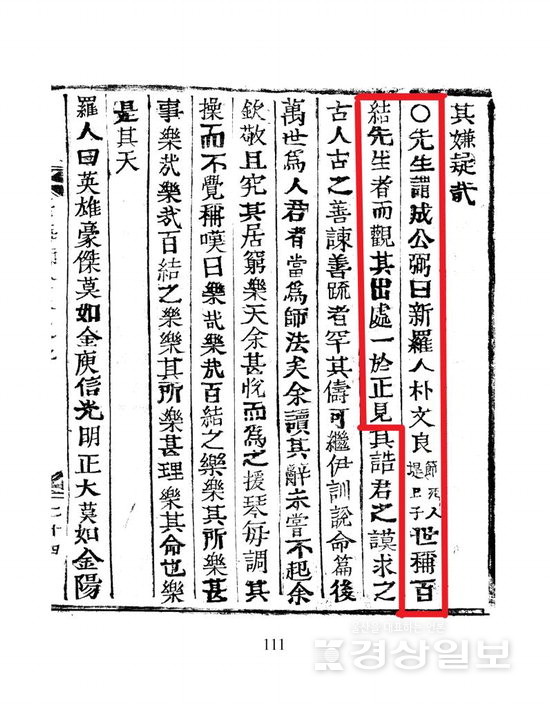 其嫌疑哉
○先生謂成公弼曰新羅人朴文良節死人堤上子世稱百
結先生者而觀其出處一於正見其誥君之謨求之
古人古之善諫善䟽者罕其儔可繼伊訓說命篇後
萬世爲人君者當爲師法矣余讀其辭未嘗不起余
欽敬且究其居窮樂天余甚悅而爲之援琴每調其
操而不覺稱嘆曰樂哉樂哉百結之樂樂其所樂甚
事樂哉樂哉百結之樂樂其所樂甚理樂其命也樂
是其天
羅人曰英雄豪傑莫如金庾信光明正大莫如金陽
二十四
111
경상일보